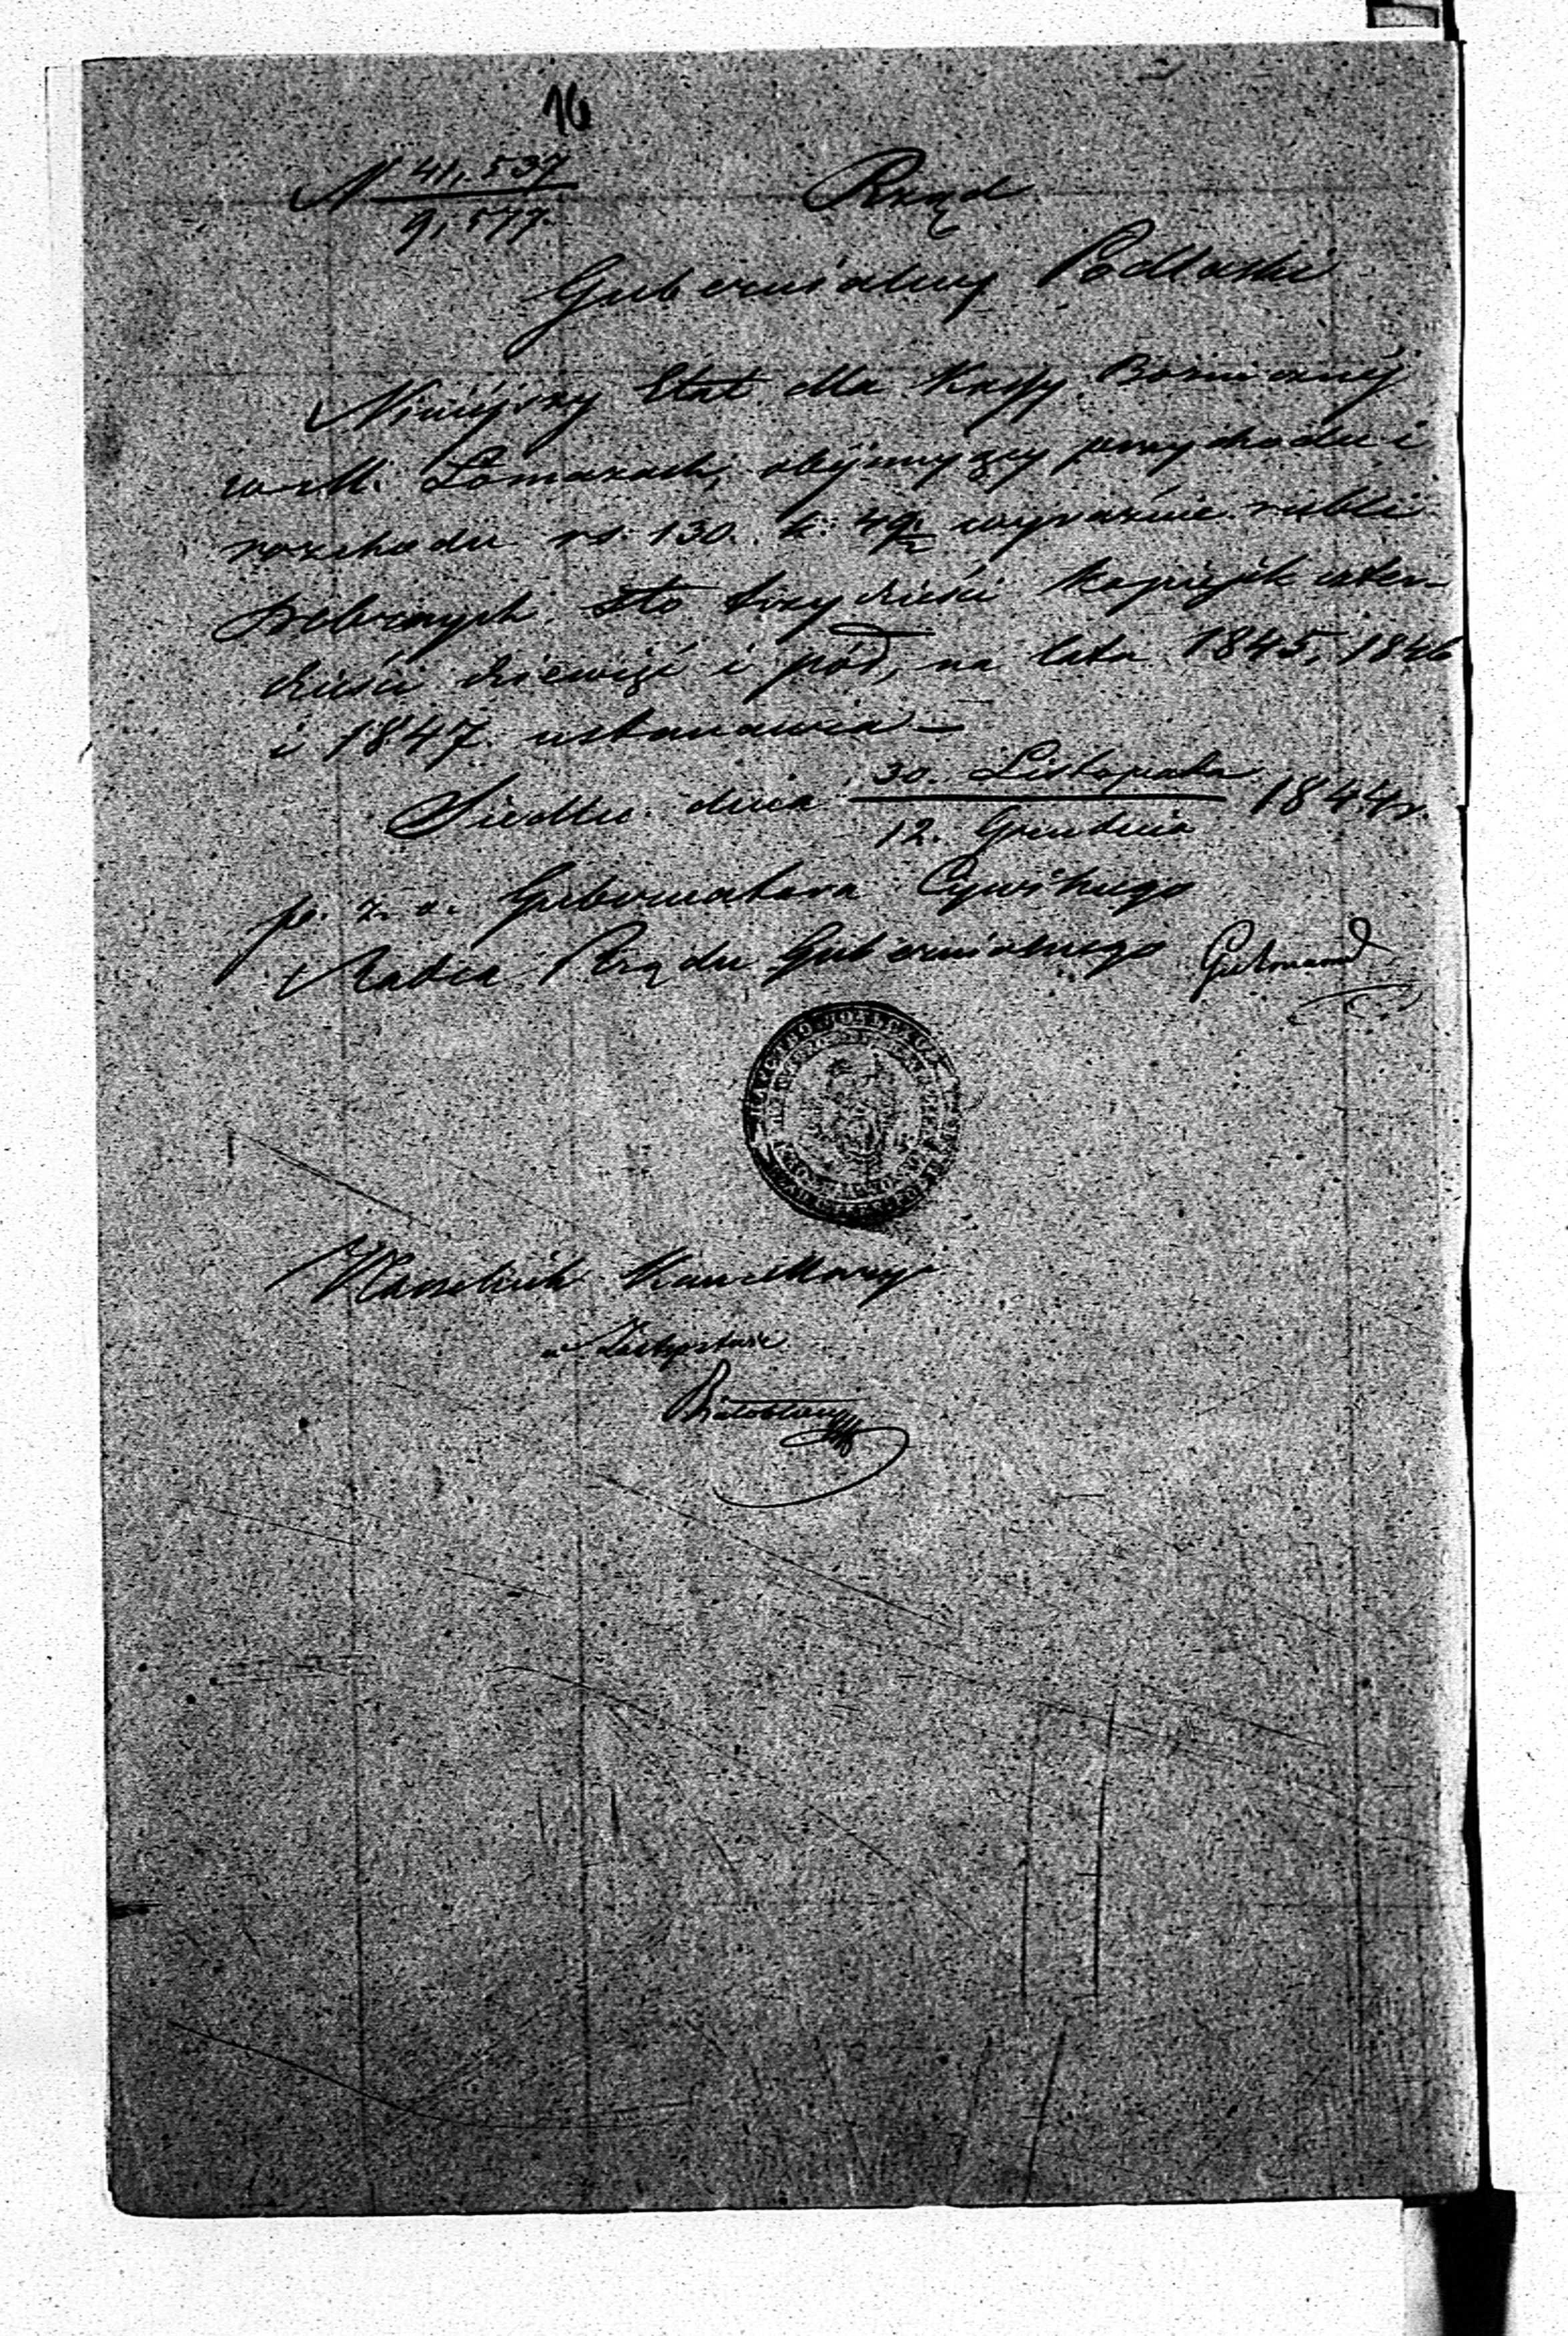 16
N 41,537
9,577.
Rząd
Gubernialny Podlaski
Niniéjszy Etat dla Kassy Bożnicznéj
w M. Łomazach, obéjmujący przychodu i
rozchodu rs. 130. k. 49½ wyraźnie rubli
srebrnych sto trzydzieści kopiejek czter-
dzieści dziewięć i pół, na lata 1845, 1846
i 1847. ustanawia –
Siedlce dnia 30. Listopada 1844 r.
12. Grudnia
p. z. o. Gubernatora Cywilnego
Radca Rządu Gubernialnego
Naczelnik Kancellaryi
w Zastępstwie